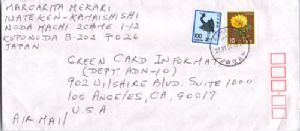 MARGARITA MERARI
IWATE KEN - KAMAISHISHI
NODA MACHI 2CHOME 1-12
KOPONODA B-202 〒026
JAPAN
100
GREEN CARD INFORMAT
(DEPT ADN-10)
902 WILSHIRE BLVD. SUITE 1000
LOS ANGELES, CA, 90017
U.S.A
AIR MAIL